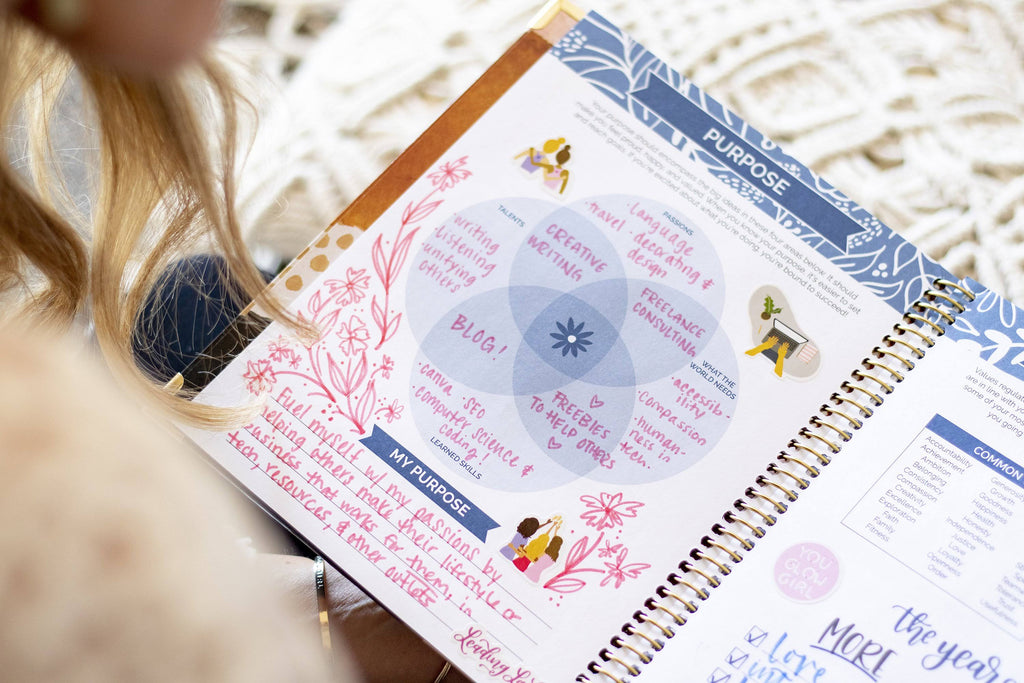 PURPOSE
Your purpose should encompass the big ideas in these four areas below. It should
make you feel proud, happy, and valued. When you know your purpose, it's easier to set
and reach goals. If you're excited about what you're doing, you're bound to succeed!
TALENTS
· writing
· listening
· unifying
others
CREATIVE
WRITING
PASSIONS
· language
· travel · decorating &
design
BLOG!
FREELANCE
CONSULTING
WHAT THE
WORLD NEEDS
· accessib-
ility
· compassion
· human-
ness in
tech.
· canva · SEO
· computer science &
coding!
LEARNED SKILLS
FREEBIES
TO HELP OTHERS
MY PURPOSE
Fuel myself w/ my passions by
helping others make their lifestyle or
business that works for them, in
tech, resources, & other outlets
Leading
Values
are in line with
some of your most
you going
COMMON
Accountability
Achievement
Ambition
Belonging
Compassion
Consistency
Creativity
Excellence
Exploration
Faith
Family
Fitness
Goodness
Growth
Happiness
Health
Honesty
Independence
Justice
Love
Loyalty
Openness
Order
YOU
GLOW
GIRL
the year
MORE
Love